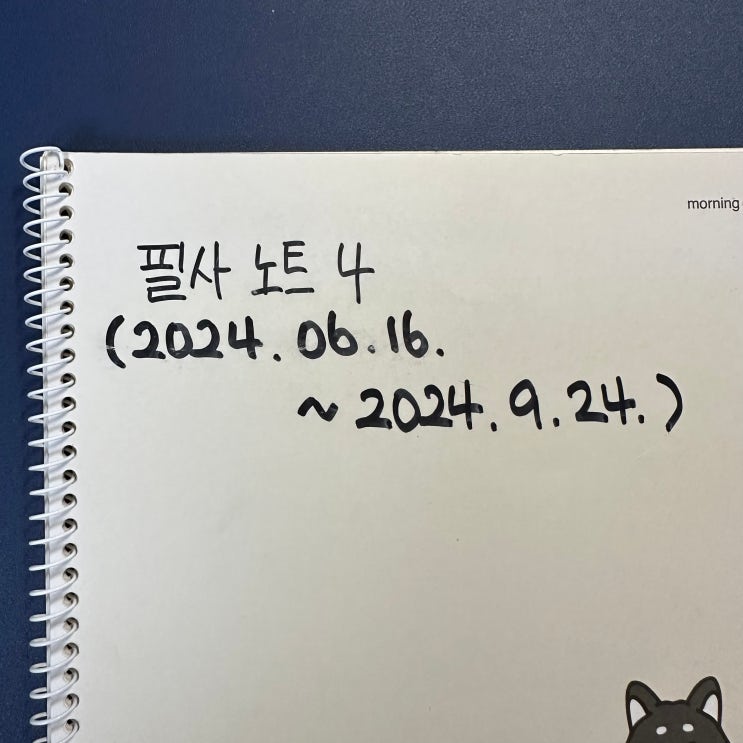 morning
필사 노트 4
(2024. 06. 16.
~ 2024. 9. 24.)